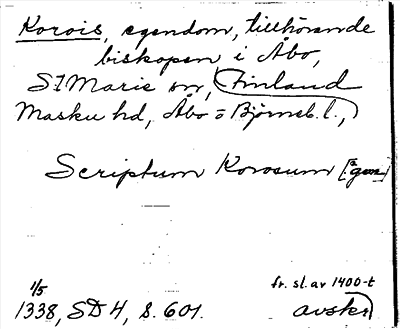 Korois, egendom, tillhörande
biskopen i Åbo,
S:t Marie sn, (Finland
Masku hd, Åbo o Björneb. l.,)
Scriptum Korosum
1/5 fr. sl. av 1400-t
1338, SD 4, s. 601. avskr)